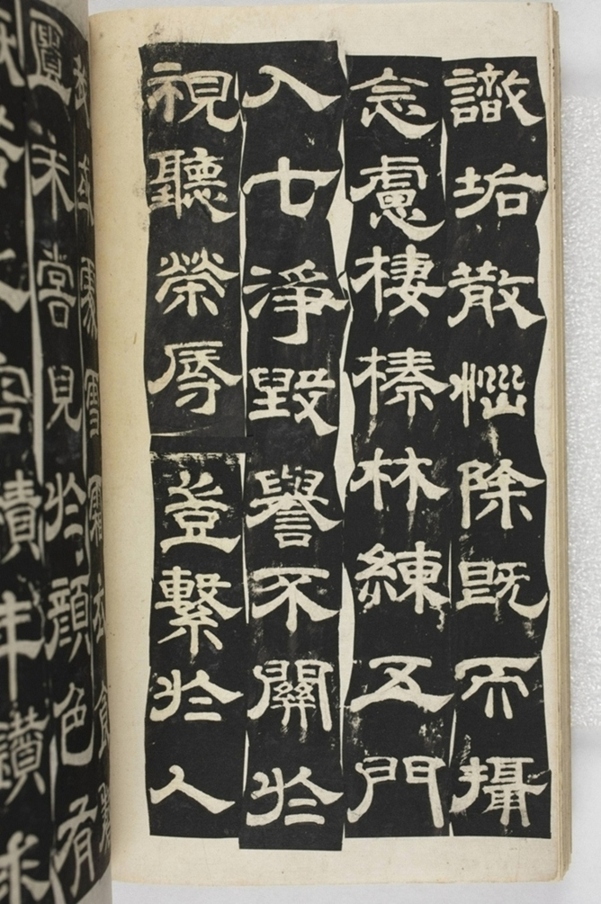 識垢散惱除既而攝
念慮棲榛林練五門
入七淨毀譽不關於
視聽榮辱豈繫於人
寒雪霜衣食
置未嘗見於顏色有